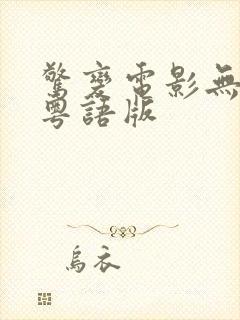 驚變電影無
粵語版
烏衣